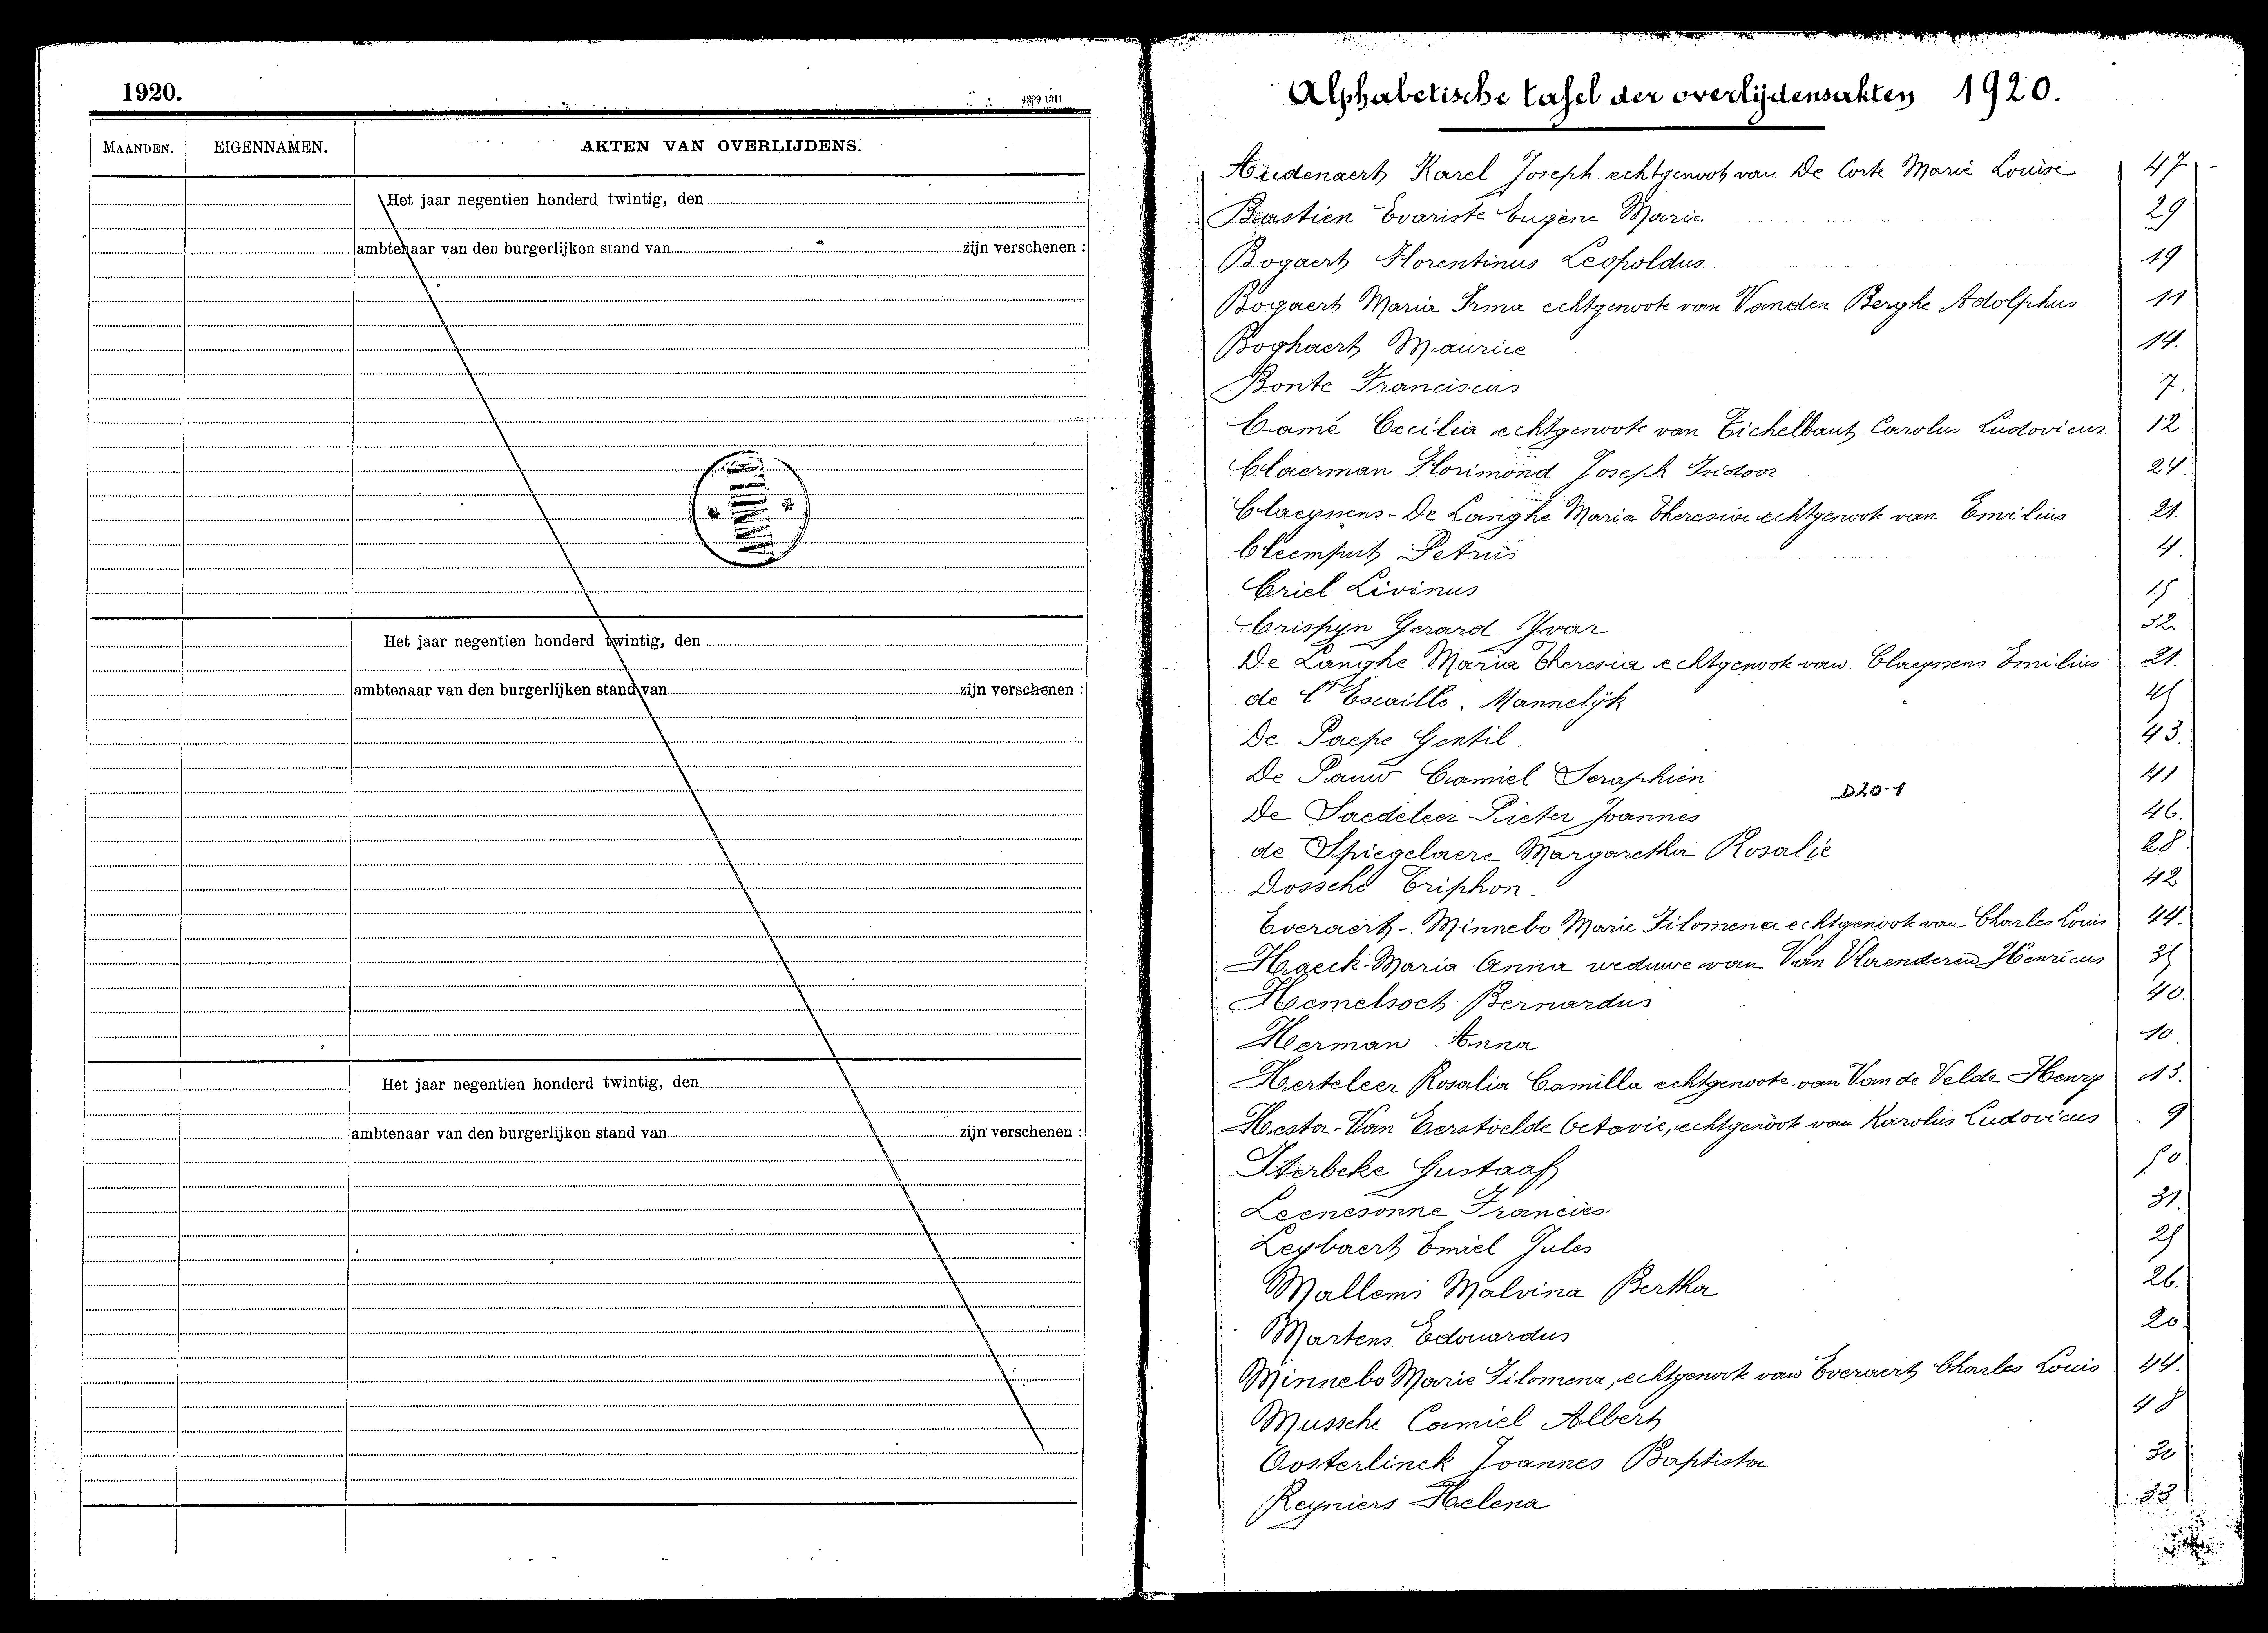 1920.
1920 1311
MAANDEN. EIGENNAMEN. AKTEN VAN OVERLIJDENS.
Het jaar negentien honderd twintig, den
ambtenaar van den burgerlijken stand van zijn verschenen :
Het jaar negentien honderd twintig, den
ambtenaar van den burgerlijken stand van zijn verschenen :
Het jaar negentien honderd twintig, den
ambtenaar van den burgerlijken stand van zijn verschenen :
Alphabetische tafel der overlijdensakten 1920.
Audenaert Karel Joseph. echtgenoot van De Corte Marie Louise 47
Bastien Evariste Eugène Marie 29
Bogaert Florentinus Leopoldus 19
Bogaert Maria Irma echtgenoote van Vanden Berghe Adolphus 11
Boghaert Maurice 14.
Bonte Franciscus 7.
Camé Cecilia echtgenoote van Eichelbaut Carolus Ludovicus 12
Claerman Florimond Joseph Isidoor 24.
Claeyssens - De Langhe Maria Theresia echtgenoote van Emilius 21.
Cleemput Petrus 4.
Criel Livinus 15
Crispyn Gerard Yvar 32.
De Langhe Maria Theresia echtgenoote van Claeyssens Emilius 21.
de l'Escaille. Mannelijk 45
De Paepe Gentil 43.
De Pauw Camiel Seraphien. 41
D20-1
De Saedeleer Pieter Joannes 46.
de Spiegelaere Margaretha Rosalie 28.
Dossche Triphon. 42
Everaert - Minnebo Marie Filomena echtgenoote van Charles Louis 44.
Haeck Maria Anna weduwe van Van Vlaenderen Henricus 35
Hemelsoet Bernardus 40.
Herman Anna 10.
Herteleer Rosalia Camilla echtgenoote van Van de Velde Henry 13.
Hesta - Van Eerstvelde Octavie, echtgenoote van Karolus Ludovicus 9
Iterbeke Gustaaf 50
Leenesonne Francies. 31.
Leybaert Emiel Jules 25
Mallems Malvina Bertha 26.
Martens Edouardus 20.
Minnebo Marie Filomena, echtgenoote van Everaert Charles Louis 44.
Mussche Camiel Albert 48
Oosterlinck Joannes Baptista 30
Reyniers Helena 33